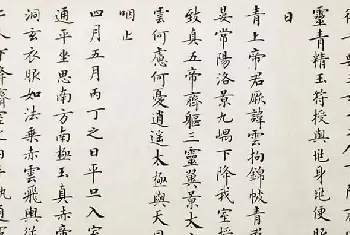 靈青精玉符授與兆身兆便服
曰
青上帝君厥諱雲拘錦帔青
晏常陽洛景九場下降我室授
致真五帝齊軀三靈翼景太
雲何慮何憂逍遙太極與天同
咽止
四月五月丙丁之日平旦入室
通平坐思南方南極玉真赤帝
洞玄衣服如法乘赤雲飛輿從
二人下降齋室之內手執通